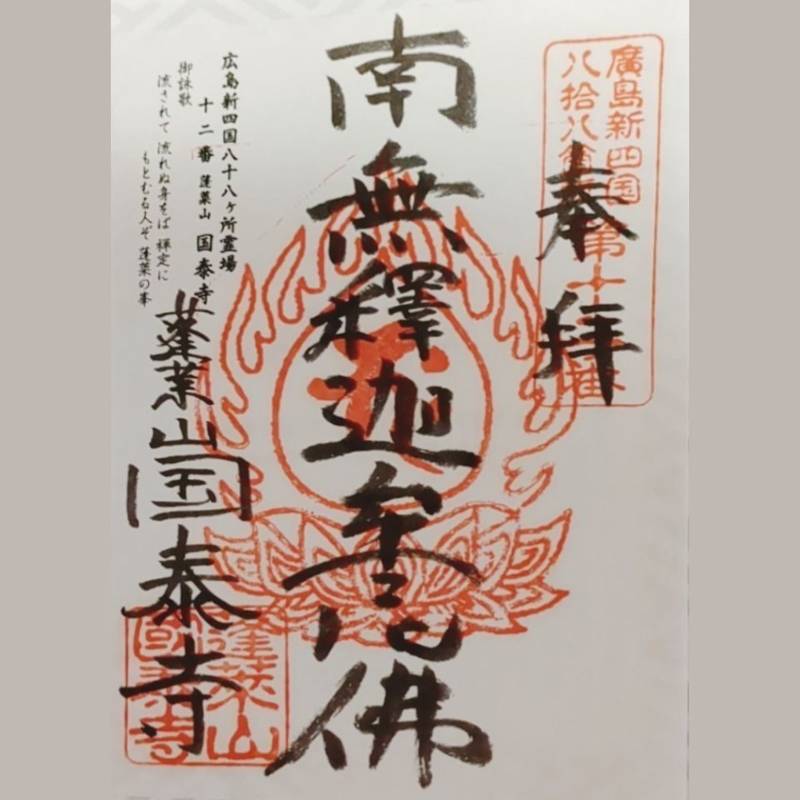 奉拝
廣島新四国
八拾八ヶ所第十二番
南無釋迦牟尼佛
広島新四国八十八ヶ所霊場
十二番 蓬莱山 国泰寺
御詠歌
流されて 流れぬ身をば 禅定に
もとむる人ぞ 蓬莱の峯
蓬莱山
国泰寺
蓬莱山
国泰寺